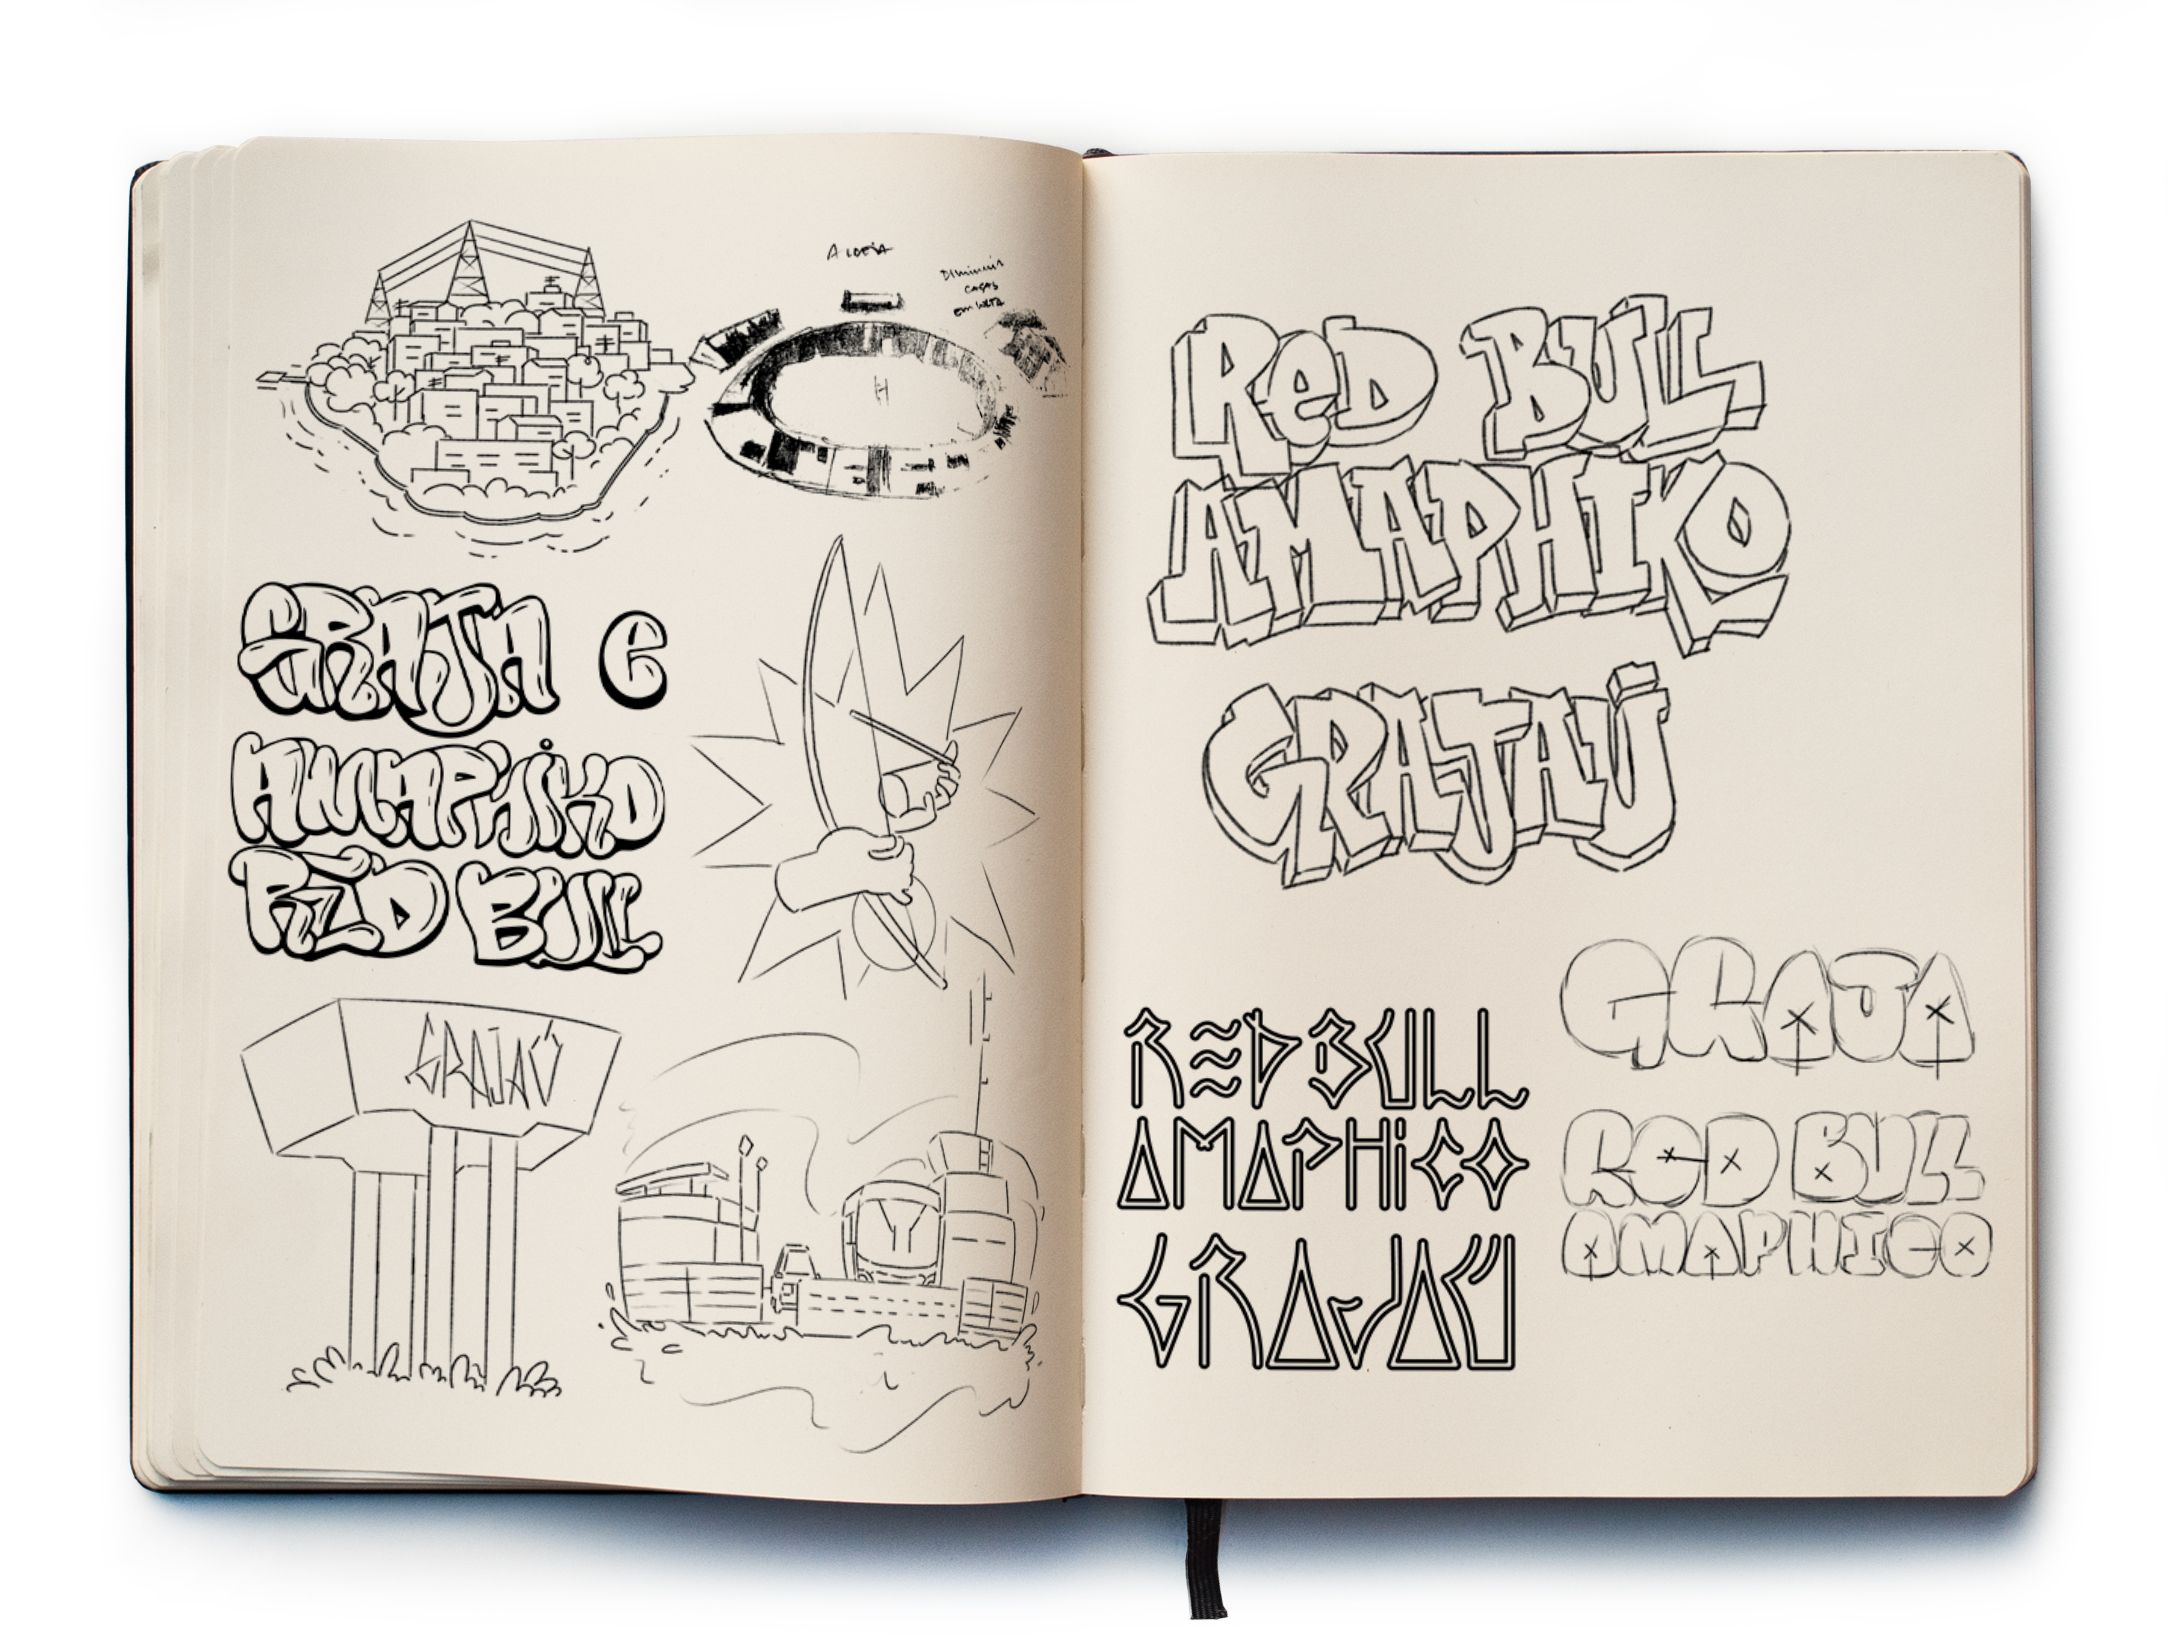 Diminuir
casas
em volta
GRAJA e
AMAPHIKO
RED BULL
GRAJAÚ
ReD BULL
AMAPHIKO
GRAJAÚ
GRAJA
RED BULL
AMAPHiCO
GRAJAÚ
RED BULL
AMAPHICO